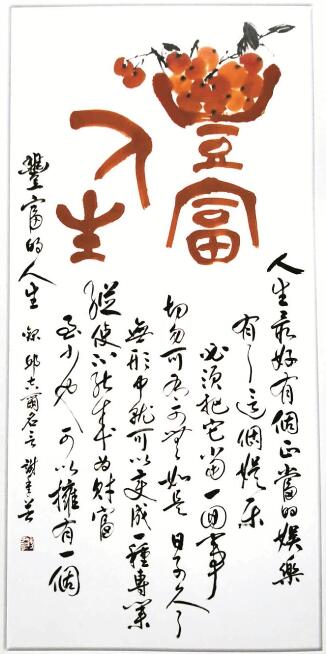 豐富
人生
人生最好有個正當的娛樂
有了這個娛樂
必須把它當一回事
切勿可有可無如是日子久了
無形中就可以變成一種專業
縱使不能成為財富
至少也可以擁有一個
豐富的人生 錄邱吉爾名言 謝